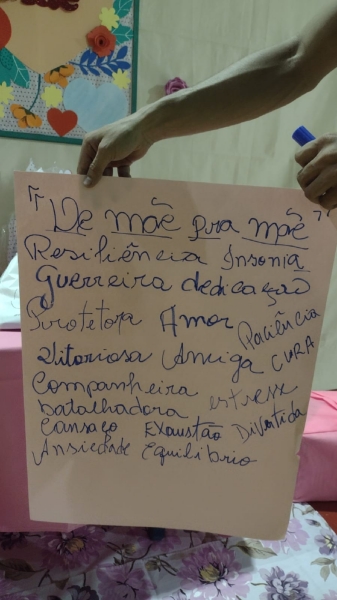 "De mãe pra mãe"
Resiliência Insonia
Guerreira dedicação
Protetora Amor Paciência
Vitoriosa Amiga CURA
Companheira estresse
batalhadora
Cansaço Exaustão Divertida
Ansiedade Equilibrio